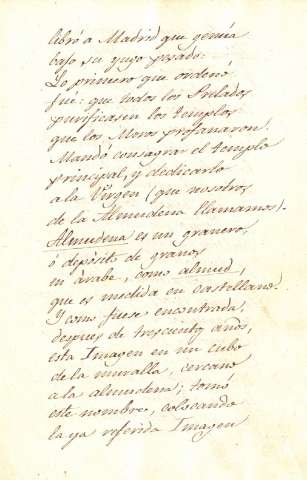 libró a Madrid que gemía
bajo su yugo pesado:
Lo primero que ordenó
fué: que todos los Prelados
purificasen los templos
que los Moros profanaron.
Mandó consagrar el templo
principal, y dedicarlo
a la Virgen (que nosotros
de la Almudena llamamos).
Almudena es un granero,
ó depósito de granos
en árabe, como almud,
que es medida en castellano.
Y como fuese encontrada,
despues de trescientos años,
esta Imagen en un cubo
de la muralla, cercano
a la almudena; tomó
este nombre, colocando
la ya referida Imagen